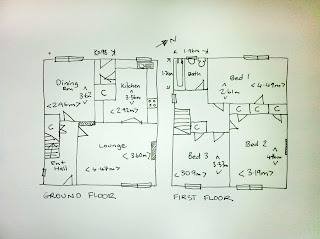 N
0.98
1.94m
Dining
Rm
3.62
<2.96m>
C
Kitchen
3.96m
<2.92m>
C
Ent
Hall
Lounge
<3.60m>
<4.47m>
GROUND FLOOR
Bath
Bed 1
2.61m
<4.49m>
C
C
C
C
Bed 3
3.33m
<3.09m>
Bed 2
<3.19m>
FIRST FLOOR